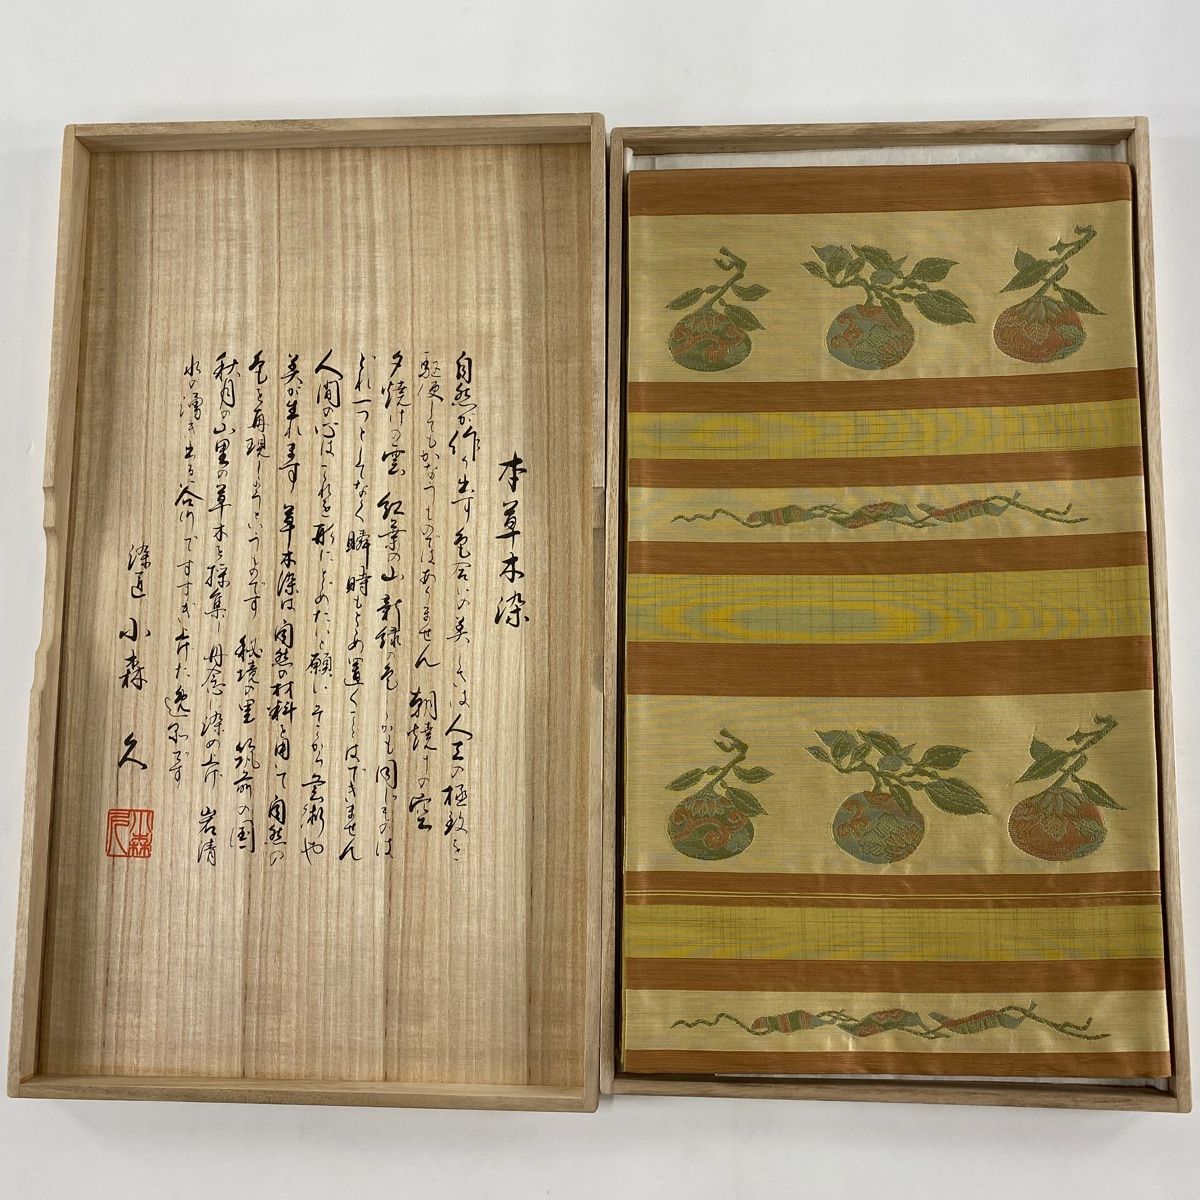 本草木染
自然が作り出す色合いの美しさは人工の極致を
駆使してもかなうものではありません 朝焼けの空
夕焼けの雲 紅葉の山 新緑の色 どれも同じものは
どれ一つとしてなく瞬時もとめ置くことはできません
人間の心はこれを形にとどめたいと願いそこから芸術や
美が生れます 草木染は自然の材料を用いて自然の
色を再現しようというものです 秘境の里 筑前の国
秋月の山里の草木を採集し丹念に染め上げ 岩清
水の湧き出る谷川ですすぎ上げた逸品です
染匠 小森 久
小森久